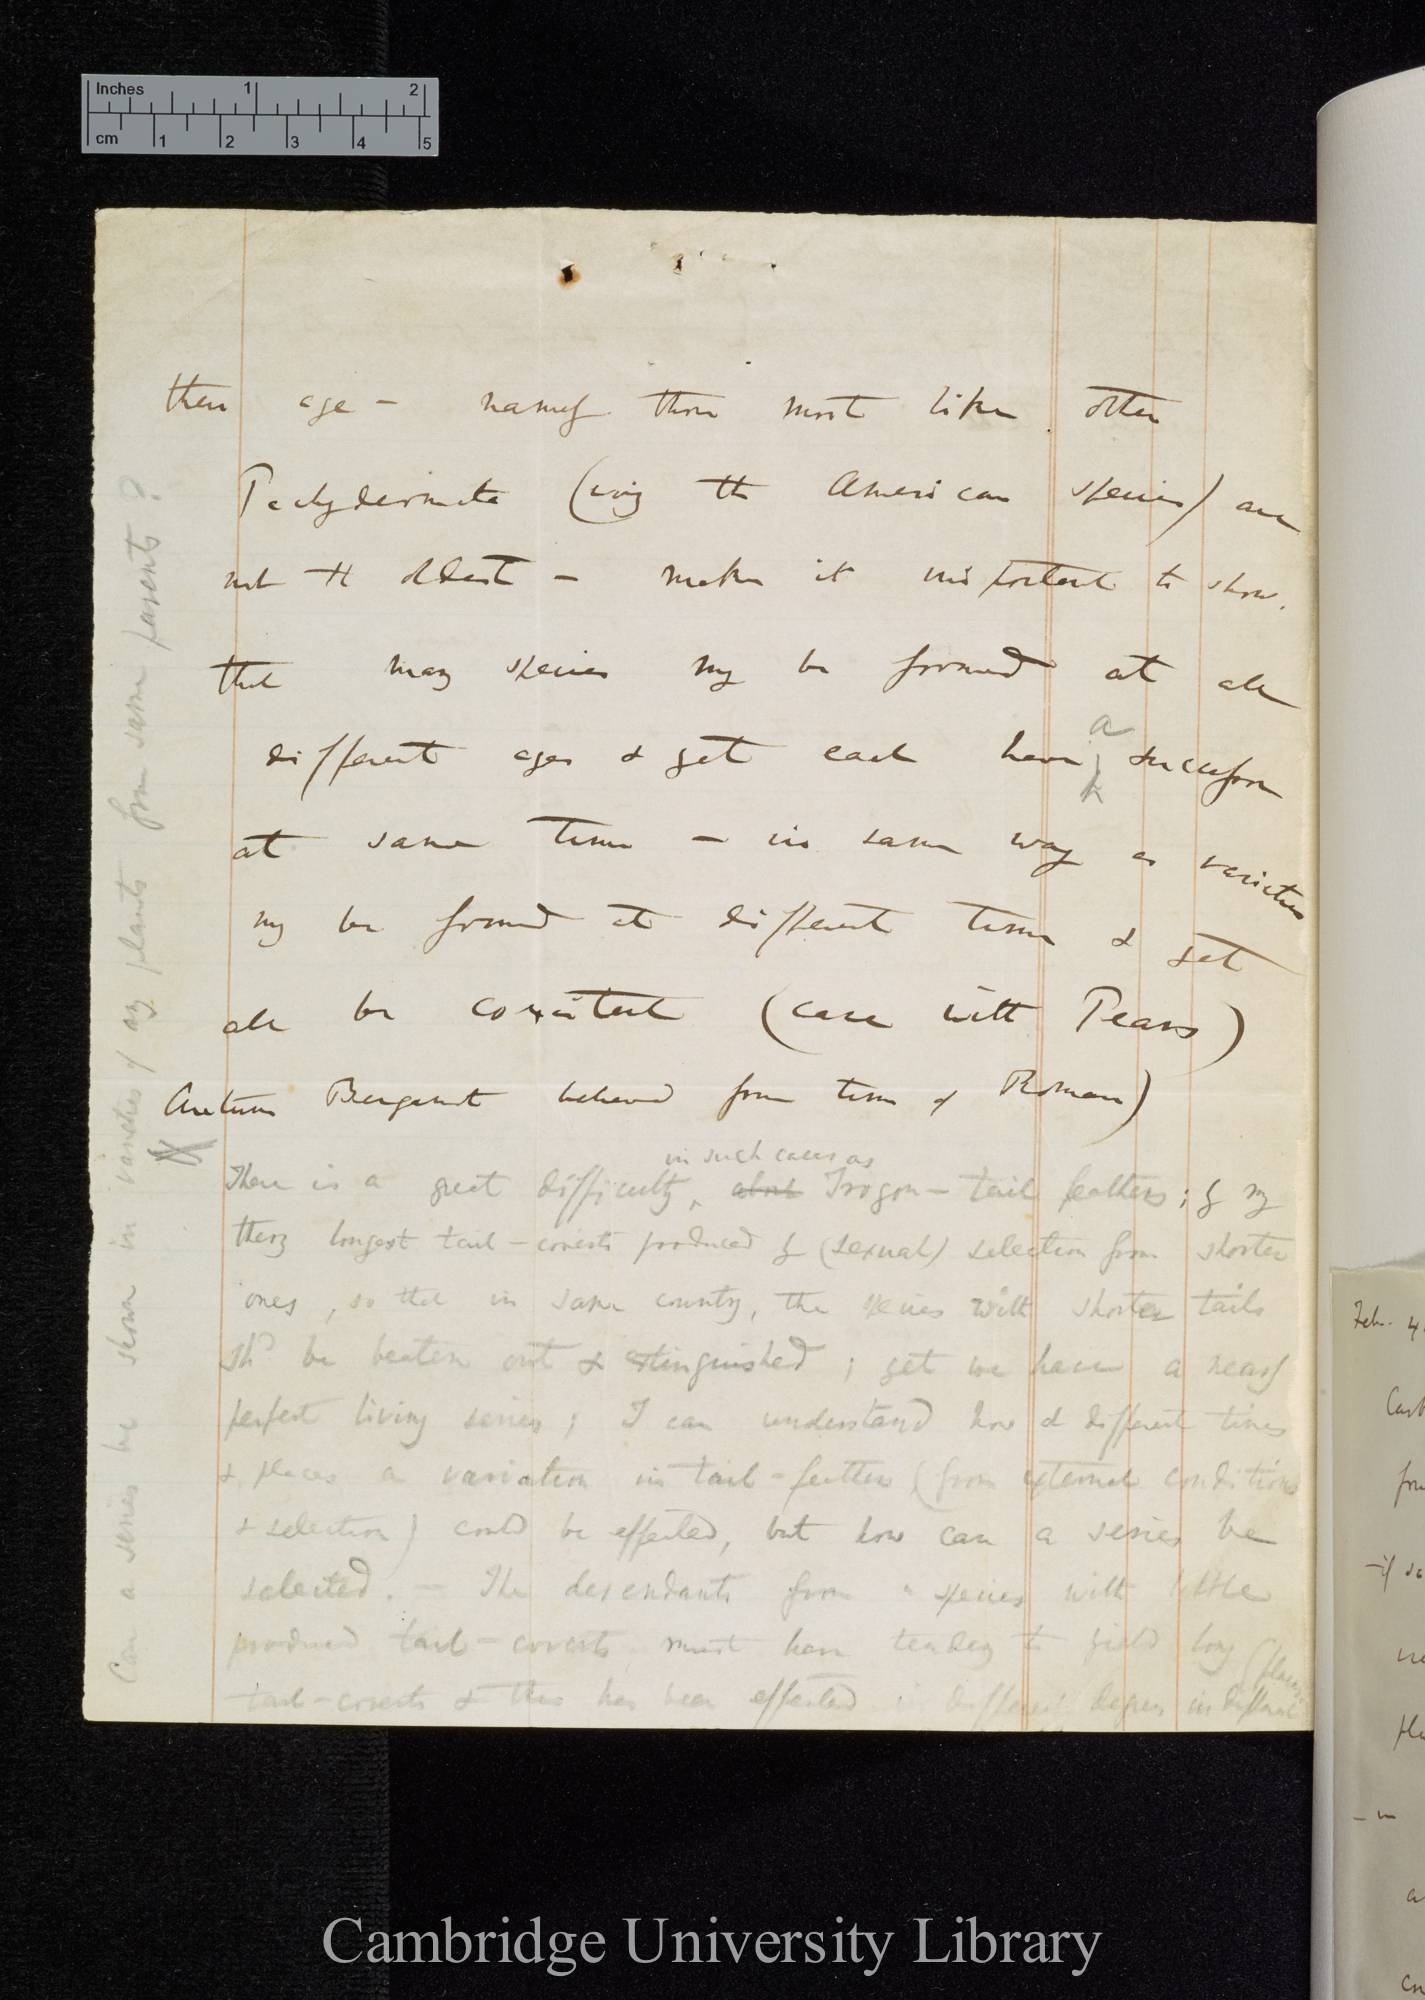 Inches 1 2
cm 1 2 3 4 5
their age — namely those most like other
Pachydermata (viz the American species) are
not the oldest — makes it important to show.
that many species may be formed at all
different ages & yet each have a succession
at same time — in same way as varieties
may be formed at different times & yet
all be coexistent (case with Pears)
Autumn Bergamot believed from time of Romans)
in such cases as
There is a great difficulty, about Trogon — tail feathers; by my
theory longest tail-coverts produced by (sexual) selection from shorter
ones, so that in same country, the species with shorter tails
shd be beaten out & extinguished; yet we have a nearly
perfect living series; I can understand how at different times
& places a variation in tail-feather (from external conditions
& selection) could be effected, but how can a series be
selected. — The descendants from a species with little
produced tail-coverts must have tendency to yield long
tail-coverts & this has been effected in different degrees in different
(places
Can a series be shown in varieties of any plants from same parents?
Feb. 4.
Cambridge University Library